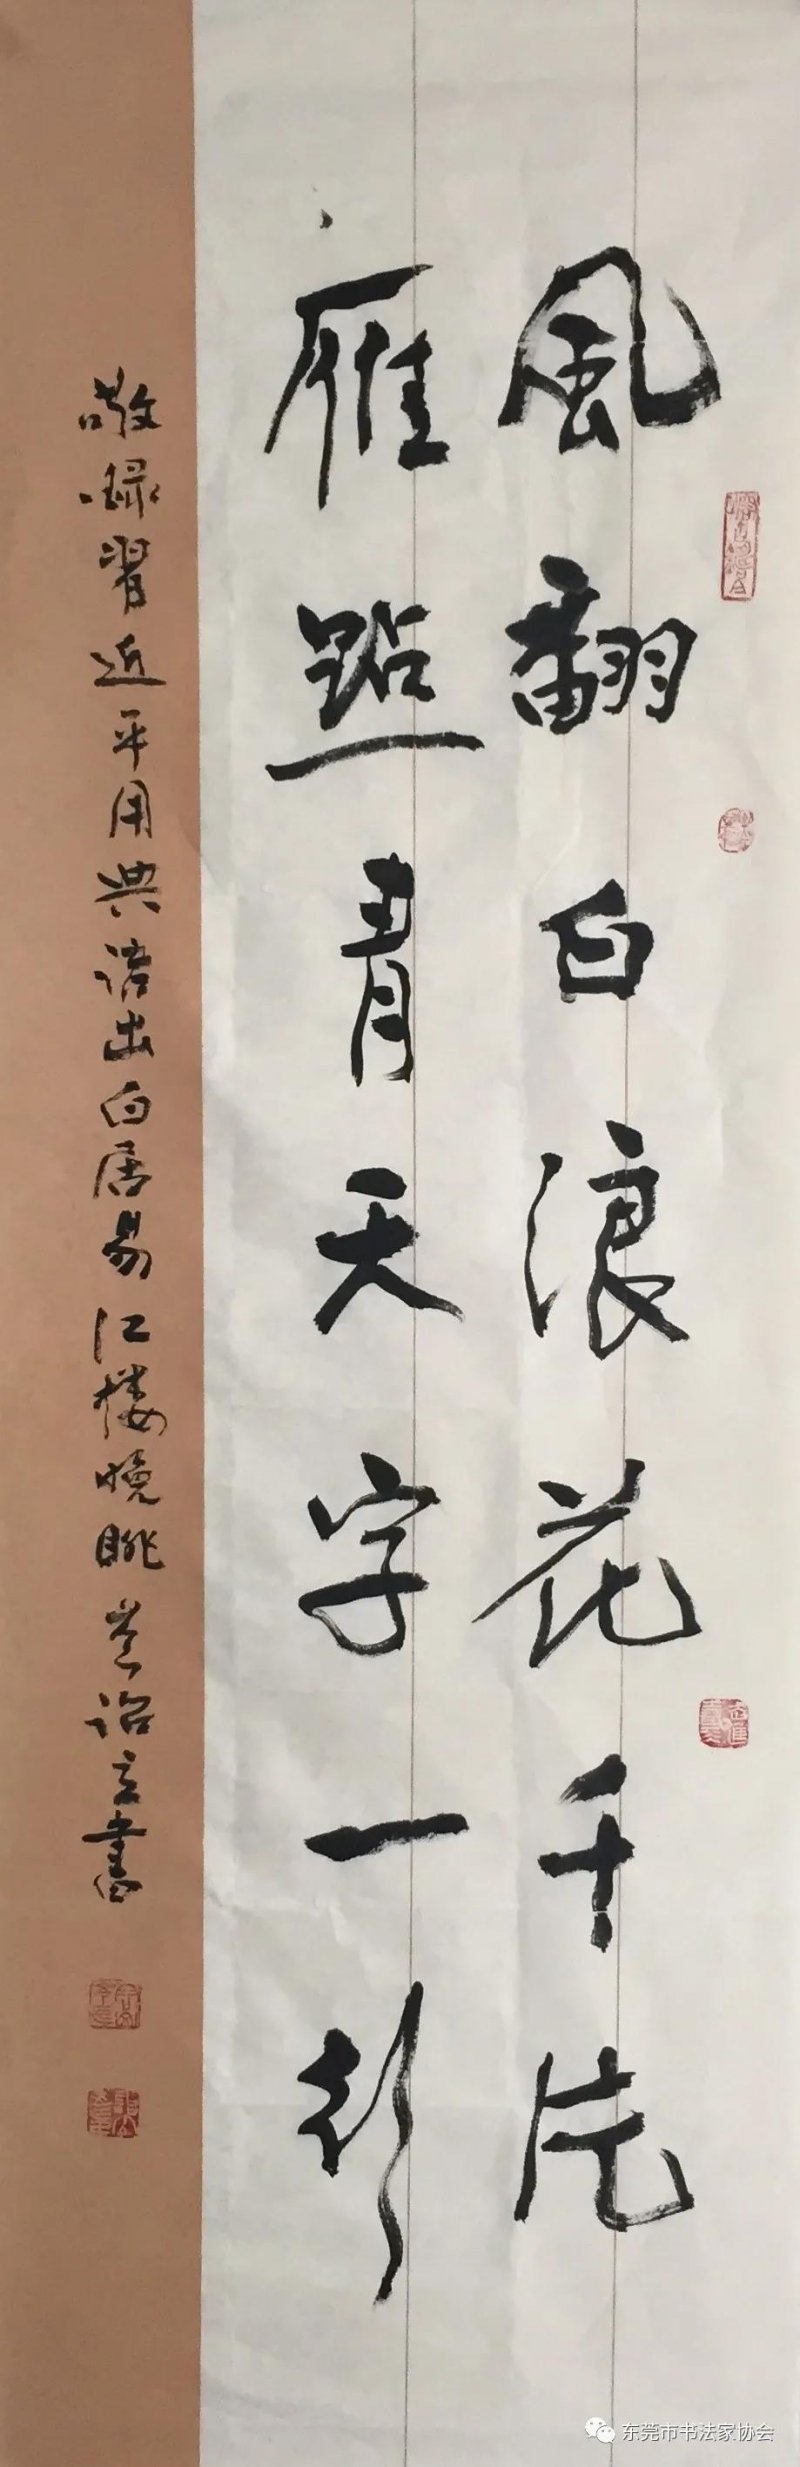 風翻白浪花千片
雁點青天字一行
敬録習近平用典語出白居易江樓晚眺
書
东莞市书法家协会